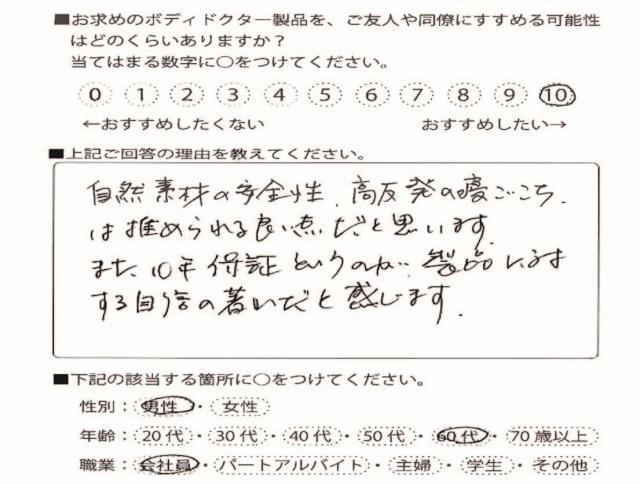 ■お求めのボディドクター製品を、ご友人や同僚にすすめる可能性
はどのくらいありますか？
当てはまる数字に○をつけてください。
0 1 2 3 4 5 6 7 8 9 10
←おすすめしたくない おすすめしたい→
■上記ご回答の理由を教えてください。
自然素材の安全性、高反発の寝ごこち、
は推められる良い点だと思います。
また、10年保証というのが、製品に対
する自信の著いだと感じます。
■下記の該当する箇所に○をつけてください。
性別：男性・女性
年齢：20代・30代・40代・50代・60代・70歳以上
職業：会社員・パートアルバイト・主婦・学生・その他